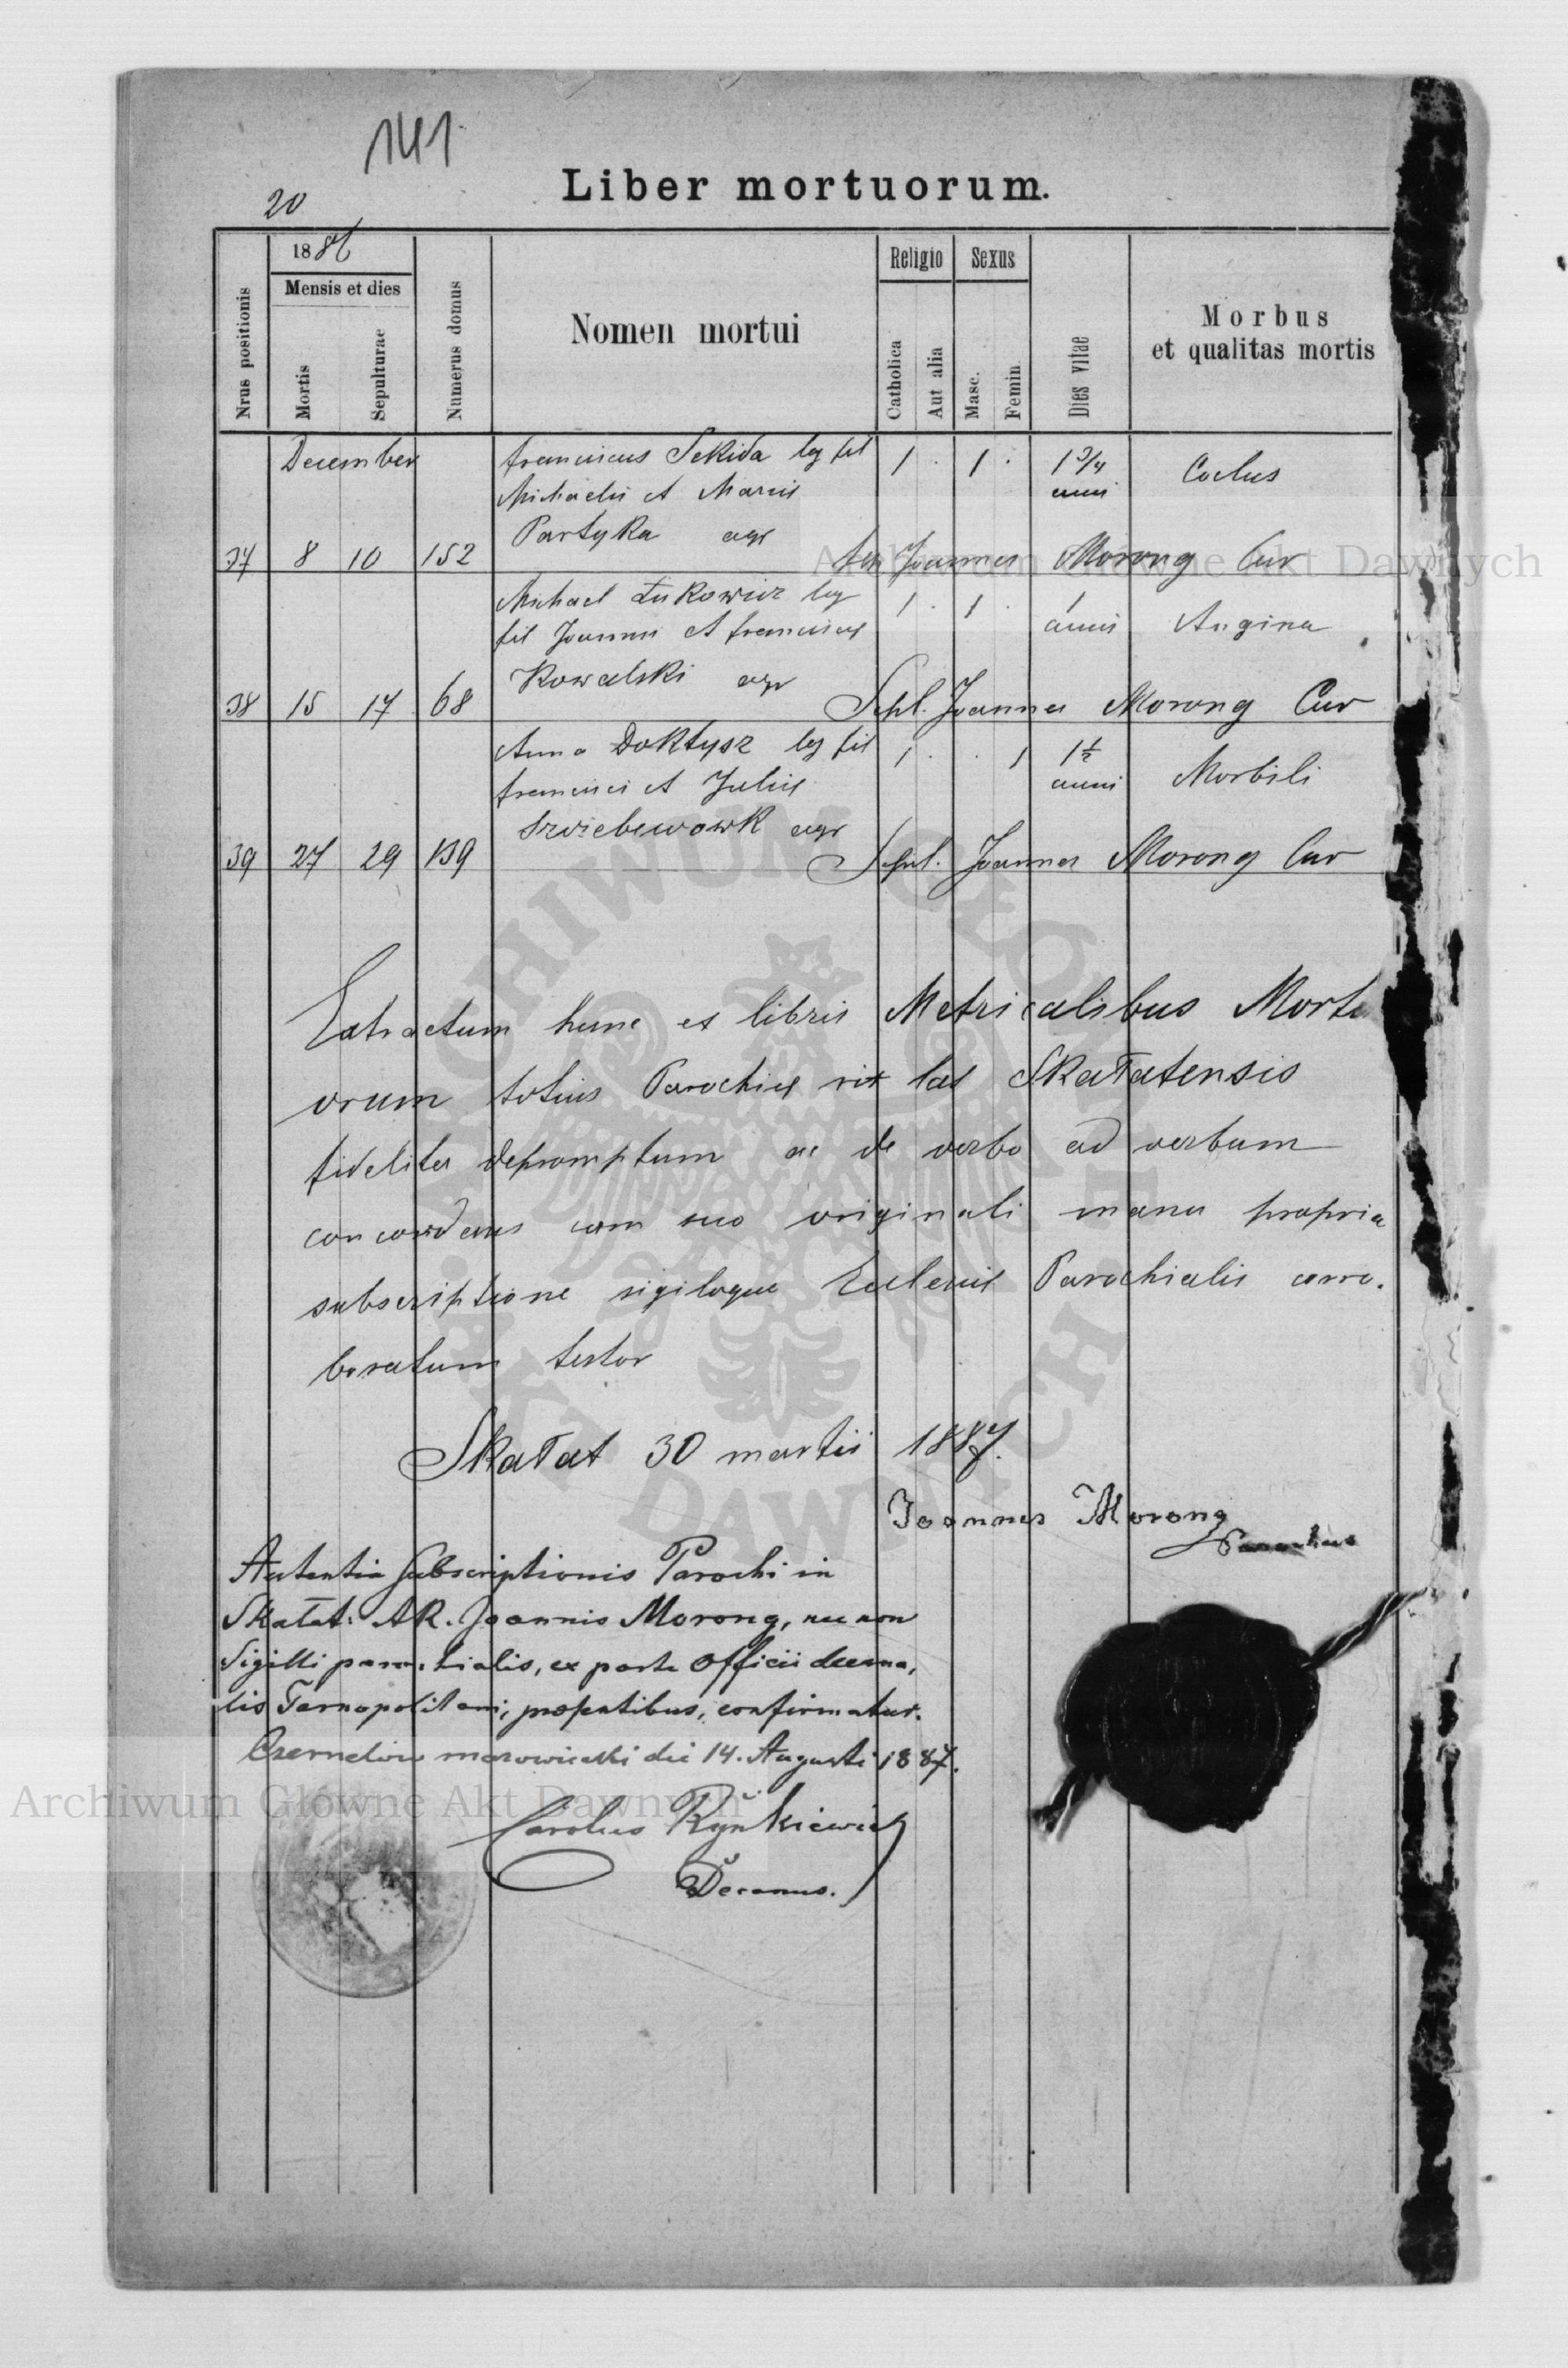 141
20
Liber mortuorum.
Nrus positionis
1886
Mensis et dies
Mortis
Sepulturae
Numerus domus
Nomen mortui
Religio
Catholica
Aut alia
Sexus
Masc.
Femin.
Dies vitae
Morbus
et qualitas mortis
December Franciscus Sekida leg fil 1 . 1 . 1 3/4 anni
Michaelis et Mariae
Partyka agr
37 8 10 152 Joannes Morong Cur
Michael Łukowicz leg 1 . 1 . 1 anni Angina
fil Joannis et Franciscae
Kowalski agr
38 15 17 68 Sepl. Joannes Morong Cur
Anna Doktysz leg fil 1 . . 1 1 1/2 anni Morbili
Francisci et Juliae
agr
39 27 29 139 Sepul. Joannes Morong Cur
Extractum hunc ex libris Metricalibus Mortu
orum totius Parochiae rit lat Skałatensis
fideliter depromptum ac de verbo ad verbum
concordans cum suo originali manu propria
subscriptione sigiloque Eclesiae Parochialis corro.
boratum testor
Skałat 30 martii 1887.
Joannes Morong
Parochus
Autentia Subscriptionis Parochi in
Skałat: AR. Joannis Morong, nec non
Sigilli parochialis, ex parte Officii decana,
lis Tarnopolitani, praesentibus, confirmatur.
Czernelow mazowiecki die 14. Augusti 1887.
Carolus Rynkiewicz
Decanus.
Archiwum Główne Akt Dawnych
Archiwum Główne Akt Dawnych
ARCHIWUM GŁÓWNE AKT DAWNYCH